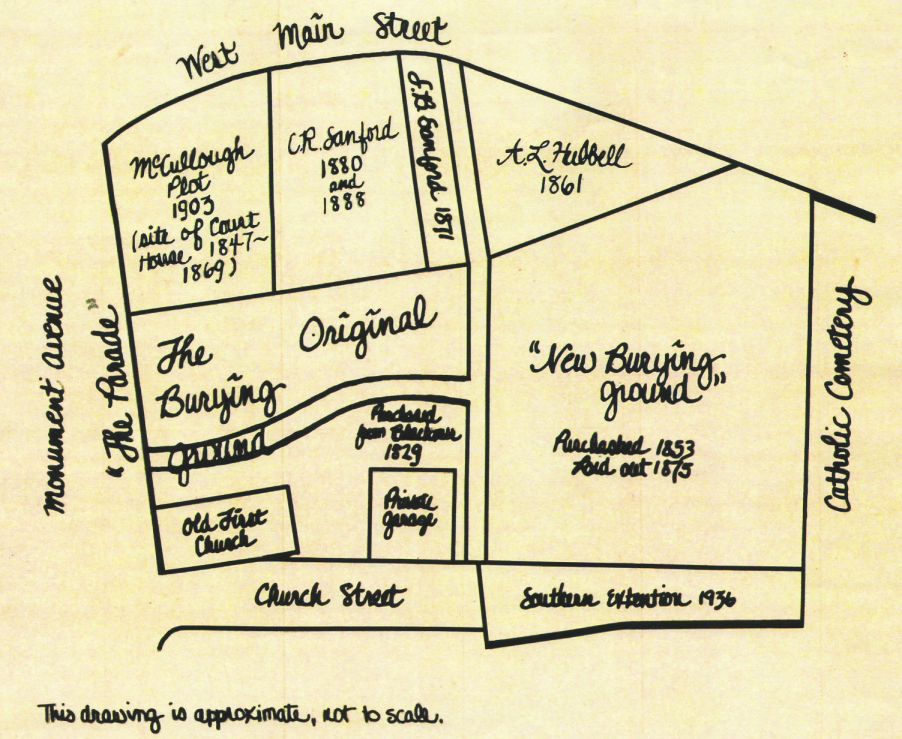 West Main Street
McCullough
Plot
1903
(site of Court
House 1847~
1869)
C.R. Sanford
1880
and
1888
S.B. Sanford 1871
A.L. Hubbell
1861
Monument Avenue
"The Parade"
The Original
Burying
Ground
Purchased
from Blackmer
1829
Old First
Church
Private
Garage
"New Burying
Ground"
Purchashed 1853
Laid out 1875
Catholic Cemetery
Church Street
Southern Extention 1936
This drawing is approximate, not to scale.